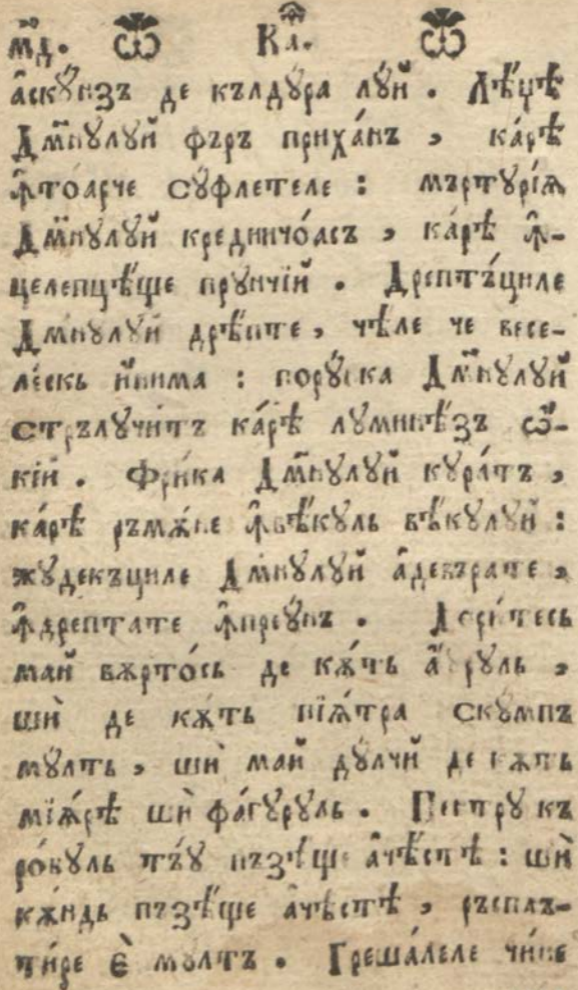 м҃д. Ѿ Ка҃. Ѿ
а҆скꙋ́нзъ де кълдꙋ́ра лꙋ́й . Лѣ́џѣ
Дм҃нꙋлꙋй фъръ приха́нъ , ка́рѣ
ꙟ҆то́арче сꙋ́флетеле : мъртꙋрі́ѧ
Дм҃нꙋ́лꙋй крединчо́асъ , ка́рѣ ꙟ҆-
целепцѣ́ще прꙋ́нчій . Дрептъ́циле
Дм҃нꙋлꙋй дрѣ́пте , чѣ́ле че весе-
ле́скь и҆́нима : порꙋ́нка Дм҃нꙋлꙋй
стрълꙋчи́тъ ка́рѣ лꙋминѣ́зъ ѻ҆́-
кїй . Фри́ка Дм҃нꙋлꙋй кꙋра́тъ ,
ка́рѣ ръмѫ́не ꙟ҆вѣ́кꙋль вѣ́кꙋлꙋй :
жꙋдекъциле Дм҃нꙋлꙋй а҆девърате ,
ꙟ҆дрепта́те ꙟ҆преꙋ́нъ . Дори́тесь
май вѫрто́сь де кѫ́ть а҆́ꙋрꙋль ,
шѝ де кѫ́ть пїѧ́тра скꙋ́мпъ
мꙋ́лть , шѝ май дꙋ́лчй де кѫть
мїѧ́рѣ шѝ фа́гꙋрꙋль . Пентрꙋ къ
ро́бꙋль тъ́ꙋ пъзѣ́ще а҆чѣ́стѣ : шѝ
кѫ́ндь пъзѣ́ще а҆чѣ́стѣ , ръсплъ-
ти́ре є҆̀ мꙋлтъ . Греша́леле чи́не